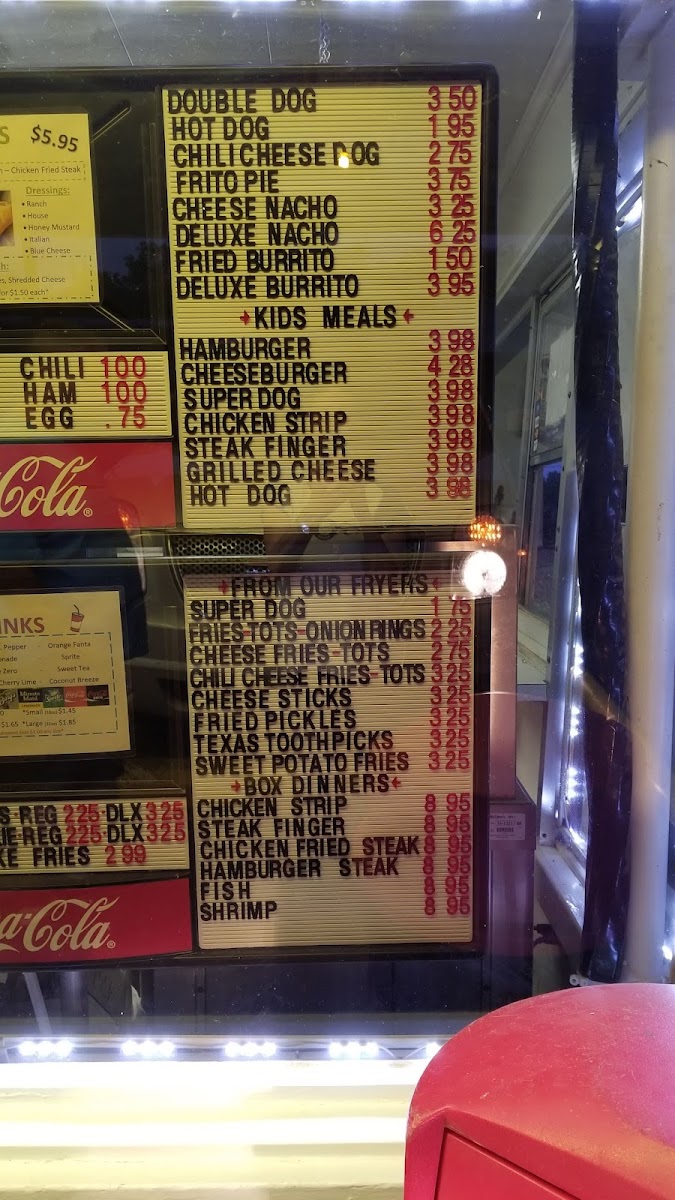 $5.95
– Chicken Fried Steak
Dressings:
• Ranch
• House
• Honey Mustard
• Italian
• Blue Cheese
Shredded Cheese
for $1.50 each*
CHILI 100
HAM 100
EGG .75
Cola
Pepper - Orange Fanta
Sprite
Zero - Sweet Tea
Cherry Lime - Coconut Breeze
*Small $1.45
$1.65 *Large $1.85
REG 225 DLX 325
REG 225 DLX 325
FRIES 299
Cola
DOUBLE DOG 3 50
HOT DOG 1 95
CHILI CHEESE DOG 2 75
FRITO PIE 3 75
CHEESE NACHO 3 25
DELUXE NACHO 6 25
FRIED BURRITO 1 50
DELUXE BURRITO 3 95
KIDS MEALS
HAMBURGER 3 98
CHEESEBURGER 4 28
SUPER DOG 3 98
CHICKEN STRIP 3 98
STEAK FINGER 3 98
GRILLED CHEESE 3 98
HOT DOG 3 98
FROM OUR FRYERS
SUPER DOG 1 75
FRIES-TOTS-ONION RINGS 2 25
CHEESE FRIES-TOTS 2 75
CHILI CHEESE FRIES-TOTS 3 25
CHEESE STICKS 3 25
FRIED PICKLES 3 25
TEXAS TOOTHPICKS 3 25
SWEET POTATO FRIES 3 25
BOX DINNERS
CHICKEN STRIP 8 95
STEAK FINGER 8 95
CHICKEN FRIED STEAK 8 95
HAMBURGER STEAK 8 95
FISH 8 95
SHRIMP 8 95